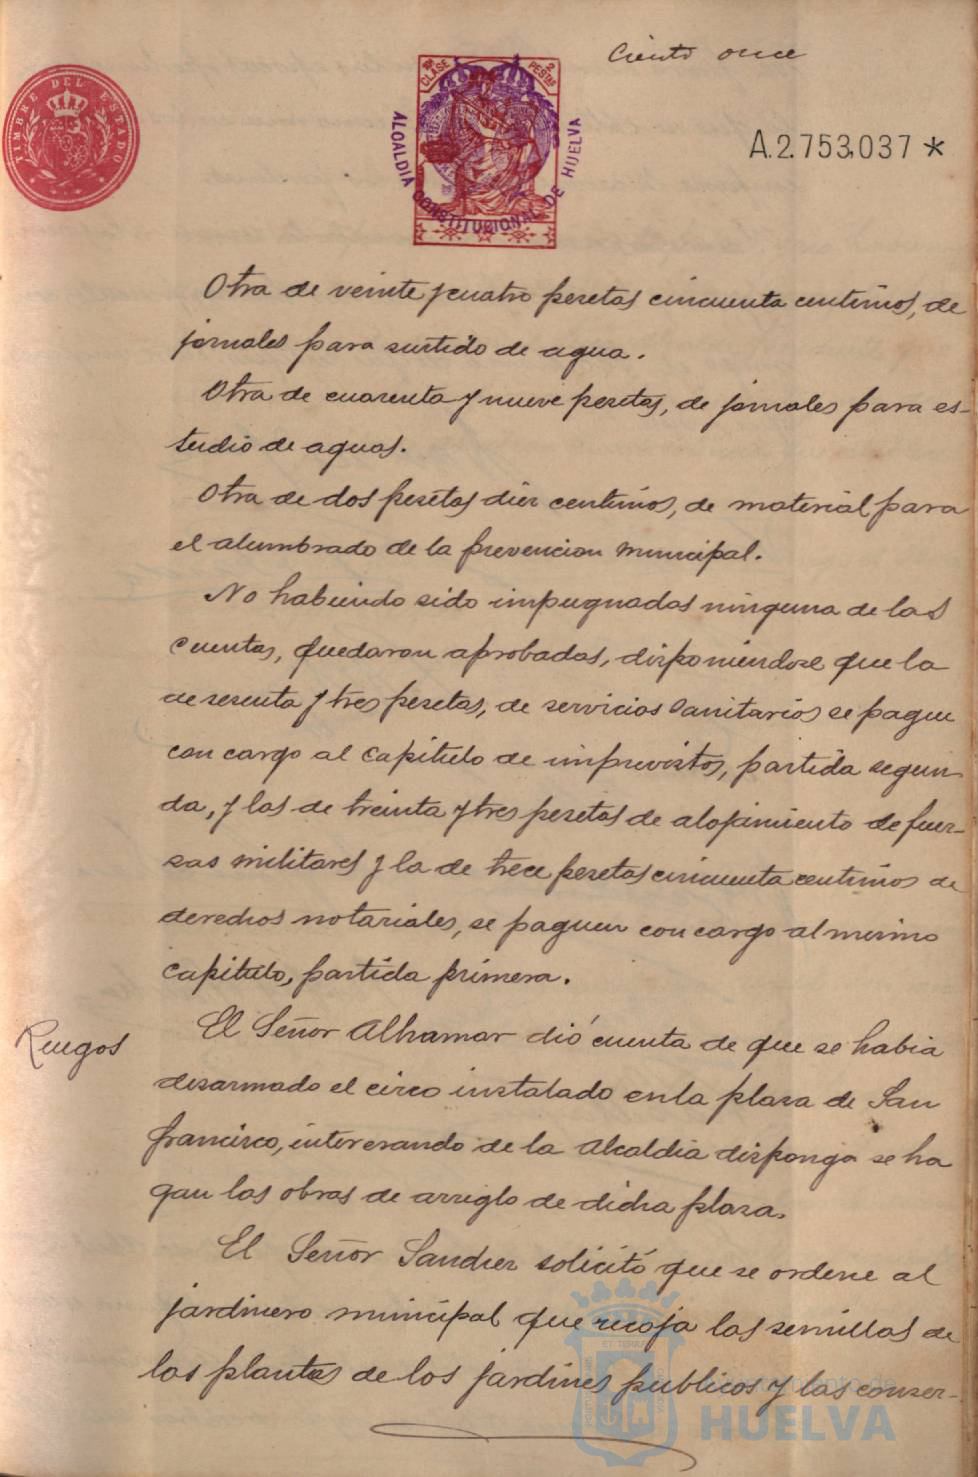 Ciento once
TIMBRE DEL ESTADO
10ª CLASE 2 PESTAS
ALCALDIA CONSTITUCIONAL DE HUELVA
A.2.753,037 *
Otra de veinte y cuatro pesetas cincuenta centimos, de
jornales para surtido de agua.
Otra de cuarenta y nueve pesetas, de jornales para es-
tudio de aguas.
Otra de dos pesetas diez centimos, de material para
el alumbrado de la prevencion municipal.
No habiendo sido impugnadas ninguna de las
cuentas, quedaron aprobadas, disponiendose que la
de sesenta y tres pesetas, de servicios sanitarios se pague
con cargo al capitulo de imprevistos, partida segun-
da, y las de treinta y tres pesetas de alojamiento de fuer-
zas militares y la de trece pesetas cincuenta centimos de
derechos notariales, se paguen con cargo al mismo
capitulo, partida primera.
Ruegos
El Señor Alhamar dió cuenta de que se habia
desarmado el circo instalado en la plaza de San
Francisco, interesando de la Alcaldia disponga se ha
gan las obras de arreglo de dicha plaza.
El Señor Sanchez solicitó que se ordene al
jardinero municipal que recoja las semillas de
las plantas de los jardines publicos y las conser-
Ayuntamiento de
HUELVA